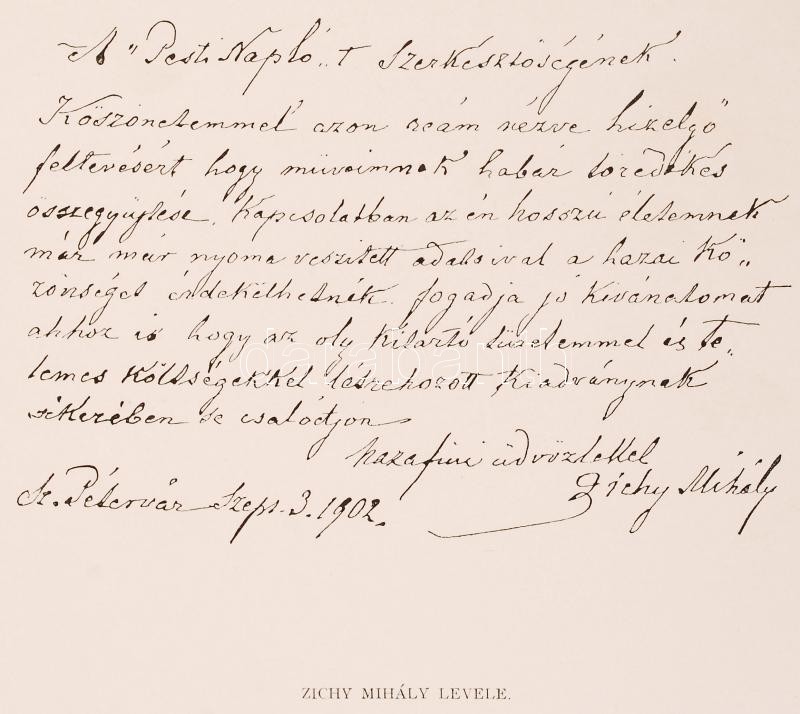 A "Pesti Napló" t. Szerkésztöségének.
Köszönetemmel azon reám nézve hizelgő
feltevésért hogy müveimnek habár töredékés
összegyüjtése, Kapcsolatban az én hosszú életemnek
már már nyoma veszitett adataival a hazai Kö„
zönséget érdekelhetnék. fogadja jó Kivánatomat
ahhoz is hogy az oly kitartó türelemmel és te„
temes Költségekkel létrehozott Kiadványnak
sikerében se csalódjon
hazafiui üdvözlettel
Zichy Mihály
Sz. Pétervár Szept. 3. 1902.
ZICHY MIHÁLY LEVELE.